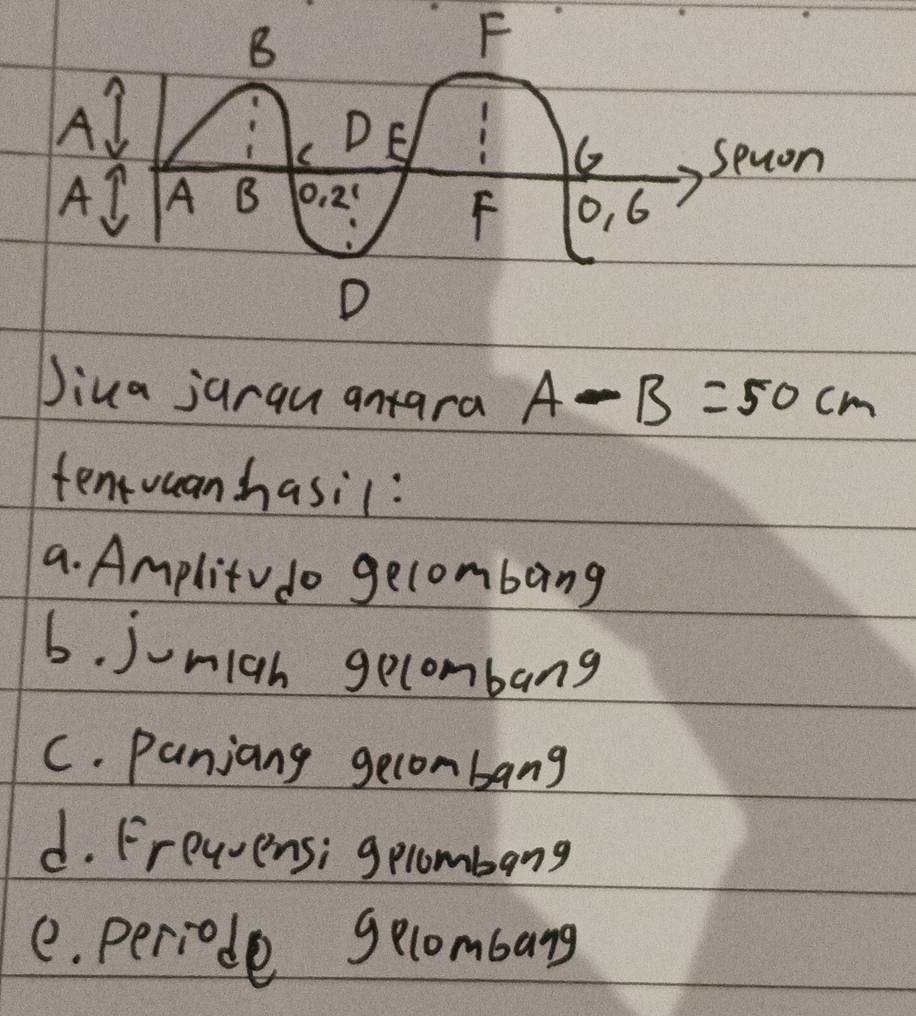 B F
A C D E G sekon
A A B 0,2 F 0,6
D
Jika jarak antara A - B = 50 cm
tentukan hasil:
a. Amplitudo gelombang
b. jumlah gelombang
c. panjang gelombang
d. Frekuensi gelombang
e. periode gelombang